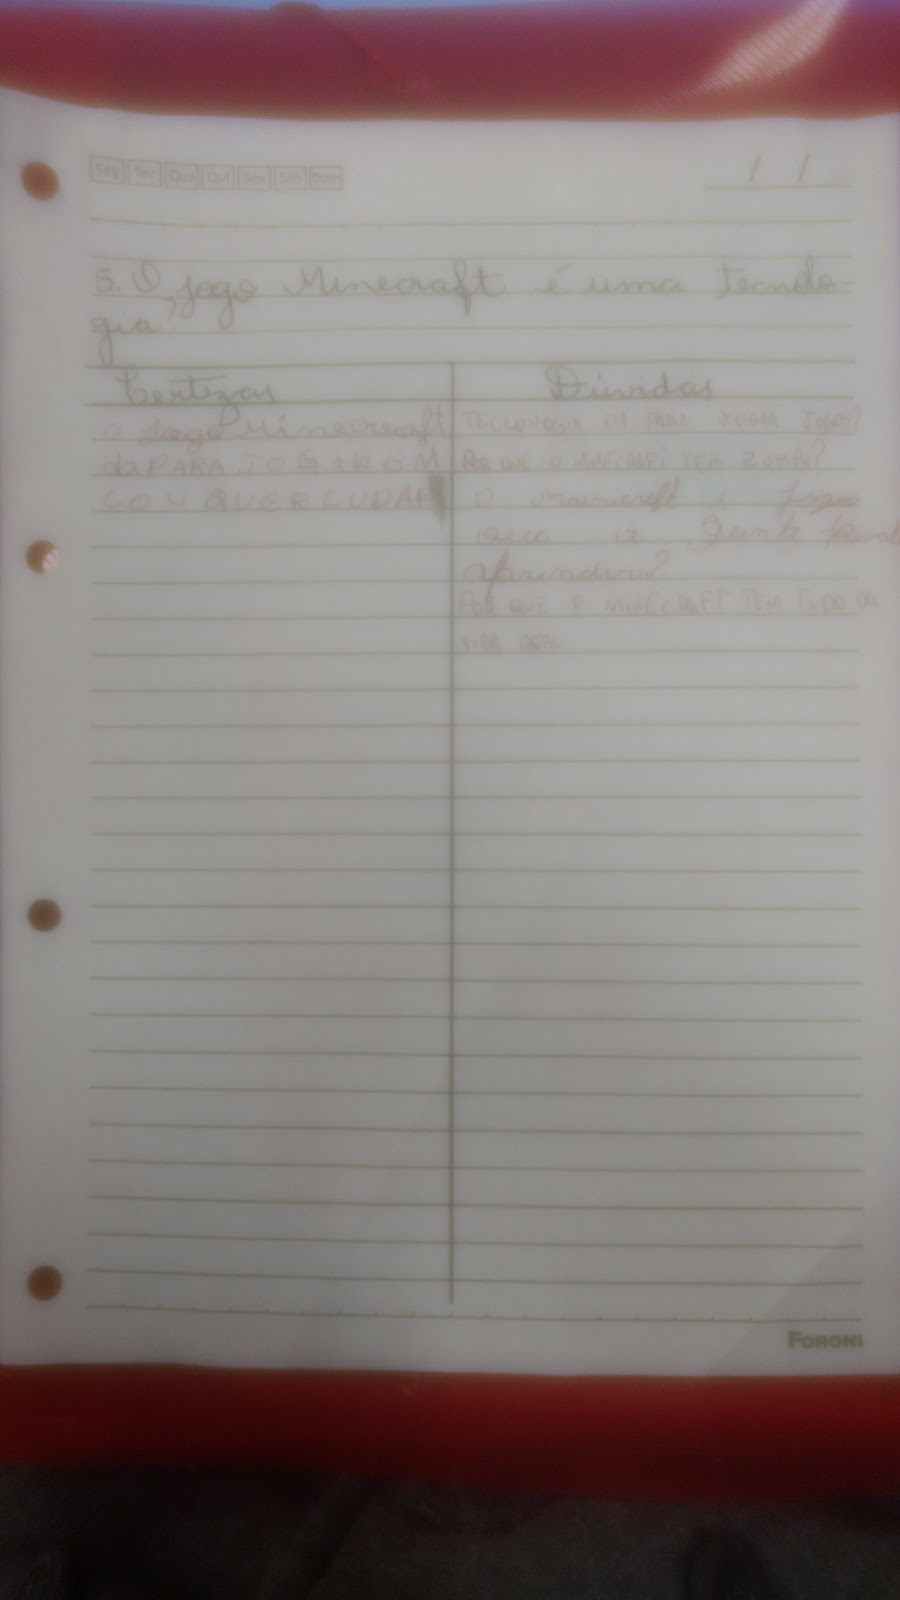 Seg Ter Qua Qui Sex Sáb Dom
/ /
5. O jogo Minecraft é uma tecnolo
gia,
Certezas
Dúvidas
O Jogo Minecraft
da PARA JOGAR COM
QUER LUDAR
DA PARA JOGAR JOGOS?
POR QUE O MINECRAFT TEM ZUMBI?
O jogo
que a Gente
aprender?
POR QUE O MINECRAFT TEM TUDO DA
VIDA REAL
FORONI